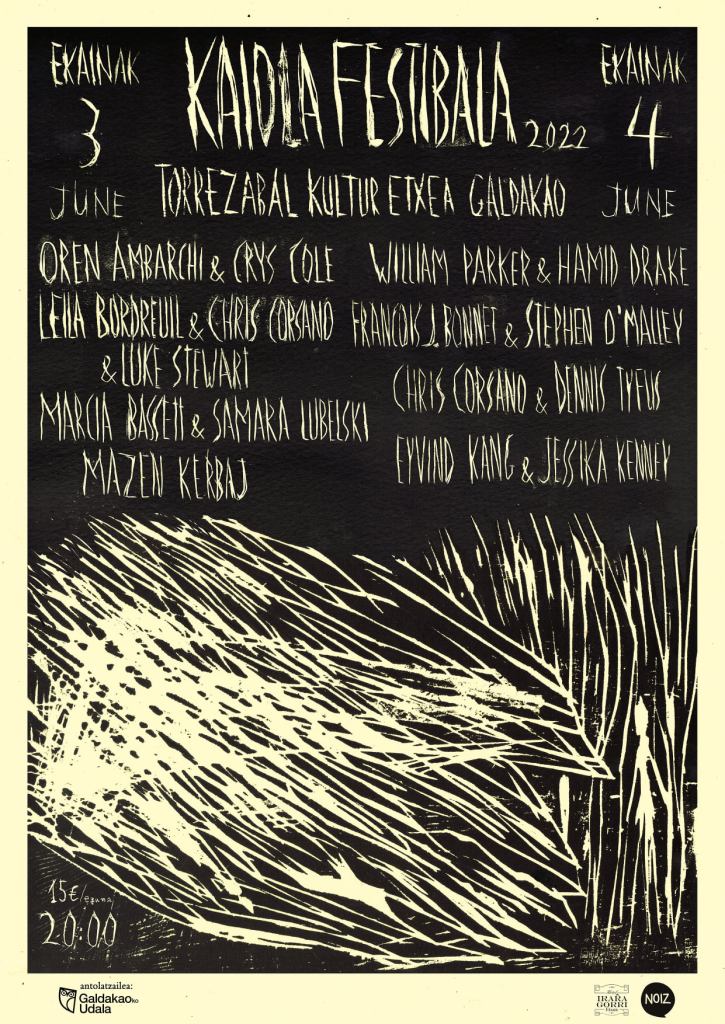 EKAINAK
3
JUNE
KAIOLA FESTIBALA 2022
TORREZABAL KULTUR ETXEA GALDAKAO
EKAINAK
4
JUNE
OREN AMBARCHI & CRYS COLE
LEILA BORDREUIL & CHRIS CORSANO
& LUKE STEWART
MARCIA BASSETT & SAMARA LUBELSKI
MAZEN KERBAJ
WILLIAM PARKER & HAMID DRAKE
FRANCOIS J. BONNET & STEPHEN O'MALLEY
CHRIS CORSANO & DENNIS TYFUS
EYVIND KANG & JESSIKA KENNEY
15€/eguna
20:00
antolatzailea:
Galdakaoko
Udala
IRAÑA
GORRI
NOIZ